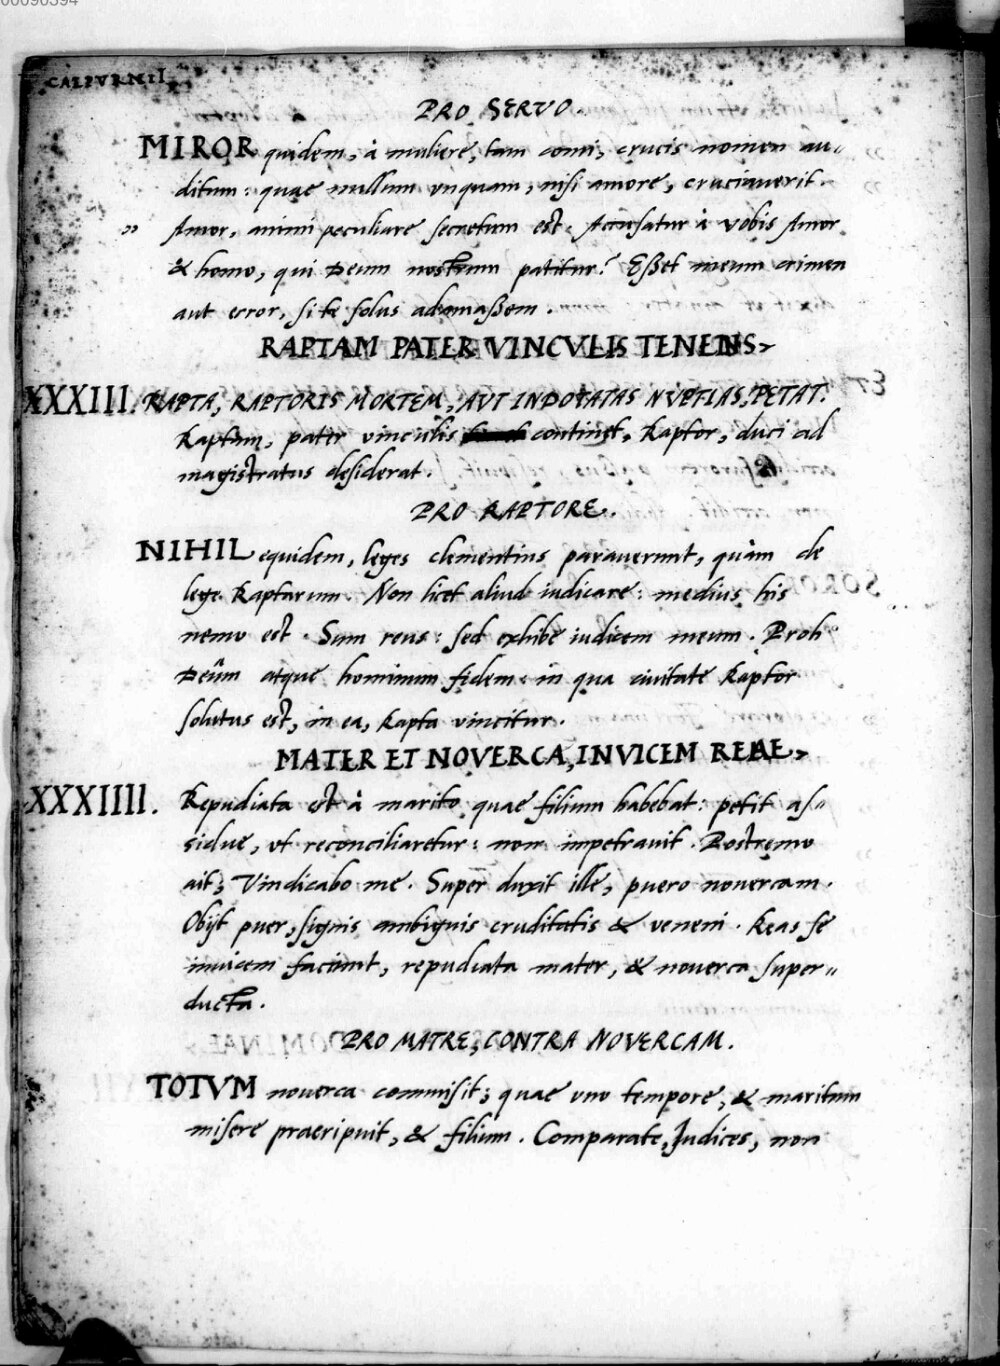 00090394
CALPVRNII
PRO SERVO.
MIROR quidem, à muliere, tam comi, crucis nomen au„
ditum: quae nullum vnquam, nisi amore, cruciauerit.
„ Amor, animi peculiare secretum est. Accusatur à vobis Amor
& homo, qui Deum nostrum patitur? Eßet meum crimen
aut error, si te solus adamaßem.
RAPTAM PATER VINCVLIS TENENS
XXXIII. RAPTA, RAPTORIS MORTEM, AVT INDOTATAS NVPTIAS, PETAT.
Raptam, pater vinculis continet, Raptor, duci ad
magistratus desiderat.
PRO RAPTORE.
NIHIL equidem, leges clementius parauerunt, quàm de
lege Raptarum. Non licet aliud iudicare: medius his
nemo est. Sum reus: sed exhibe iudicem meum. Proh
Deûm atque hominum fidem: in qua ciuitate Raptor
solutus est, in ea, Rapta vincitur.
MATER ET NOVERCA, INVICEM REAE
XXXIIII. Repudiata est à marito quae filium habebat: petit as„
sidue, vt reconciliaretur: non impetrauit. Postremo
ait; Vindicabo me. Super duxit ille, puero nouercam.
Obijt puer, signis ambiguis cruditatis & veneni. Reas se
inuicem faciunt, repudiata mater, & nouerca super„
ducta.
PRO MATRE, CONTRA NOVERCAM.
TOTVM nouerca commisit; quae vno tempore, & maritum
misere praeripuit, & filium. Comparate, Iudices, non